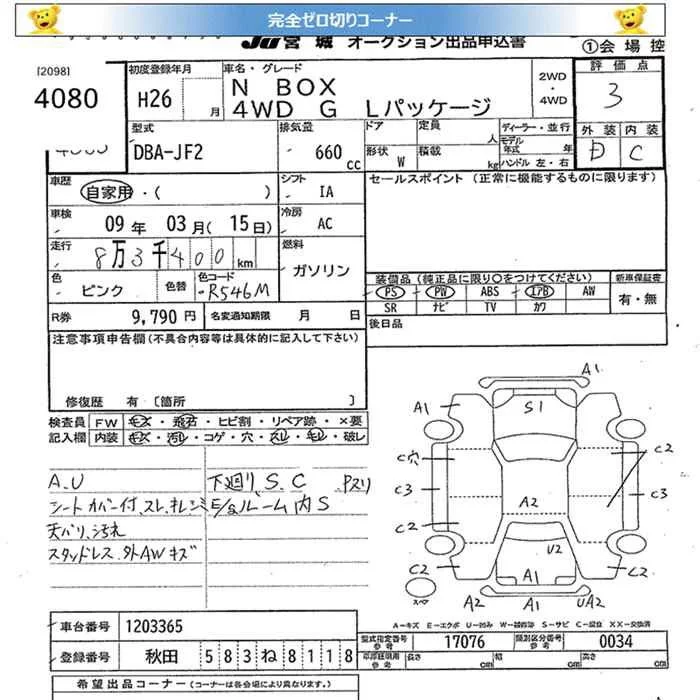 完全ゼロ切りコーナー
JU宮城 オークション出品申込書
①会場控
[2098]
4080
初度登録年月
H26 月
車名・グレード
N BOX
4WD G Lパッケージ
2WD
・
4WD
評価点
3
外装 内装
D C
型式
DBA-JF2
排気量
660 cc
ドア
定員
人
形状
W
積載
kg
ディーラー・並行
モデル年式 年
ハンドル 左・右
車歴
自家用・( )
シフト
IA
セールスポイント (正常に機能するものに限ります)
車検
09年 03月(15日)
冷房
AC
走行
8万3千400km
燃料
ガソリン
色
ピンク
色替
色コード
R546M
装備品(純正品に限り○をつけてください)
新車保証書
PS PW ABS エアB AW
SR ナビ TV カワ
有・無
R券 9,790円
名変通知期限 月 日
後日品
注意事項申告欄(不具合内容等は具体的に記入して下さい)
修復歴 有 〔箇所 〕
検査員 FW キズ・飛石・ヒビ割・リペア跡・×要
記入欄 内装 キズ・汚レ・コゲ・穴・スレ・モレ・破レ
A.U 下廻り、S.C Pスリ
シートカバー付、スレ、キレ、シミ E/gルーム内S
天バリ、汚れ
スタッドレス、外AWキズ
A1
A1
S1
C穴
C2
C3
C3
A2
C2
U2
C2
C2
スペア
A2
A1
A1
UA2
A-キズ E-エクボ U-凹み W-補修跡 S-サビ C-腐食 XX-交換済
車台番号 1203365
型式指定番号
参考
17076
類別区分番号
参考
0034
登録番号 秋田 583ね8118
車庫証明用
参考
長さ cm
幅 cm
高さ cm
希望出品コーナー(コーナーは各会場により異なります。)